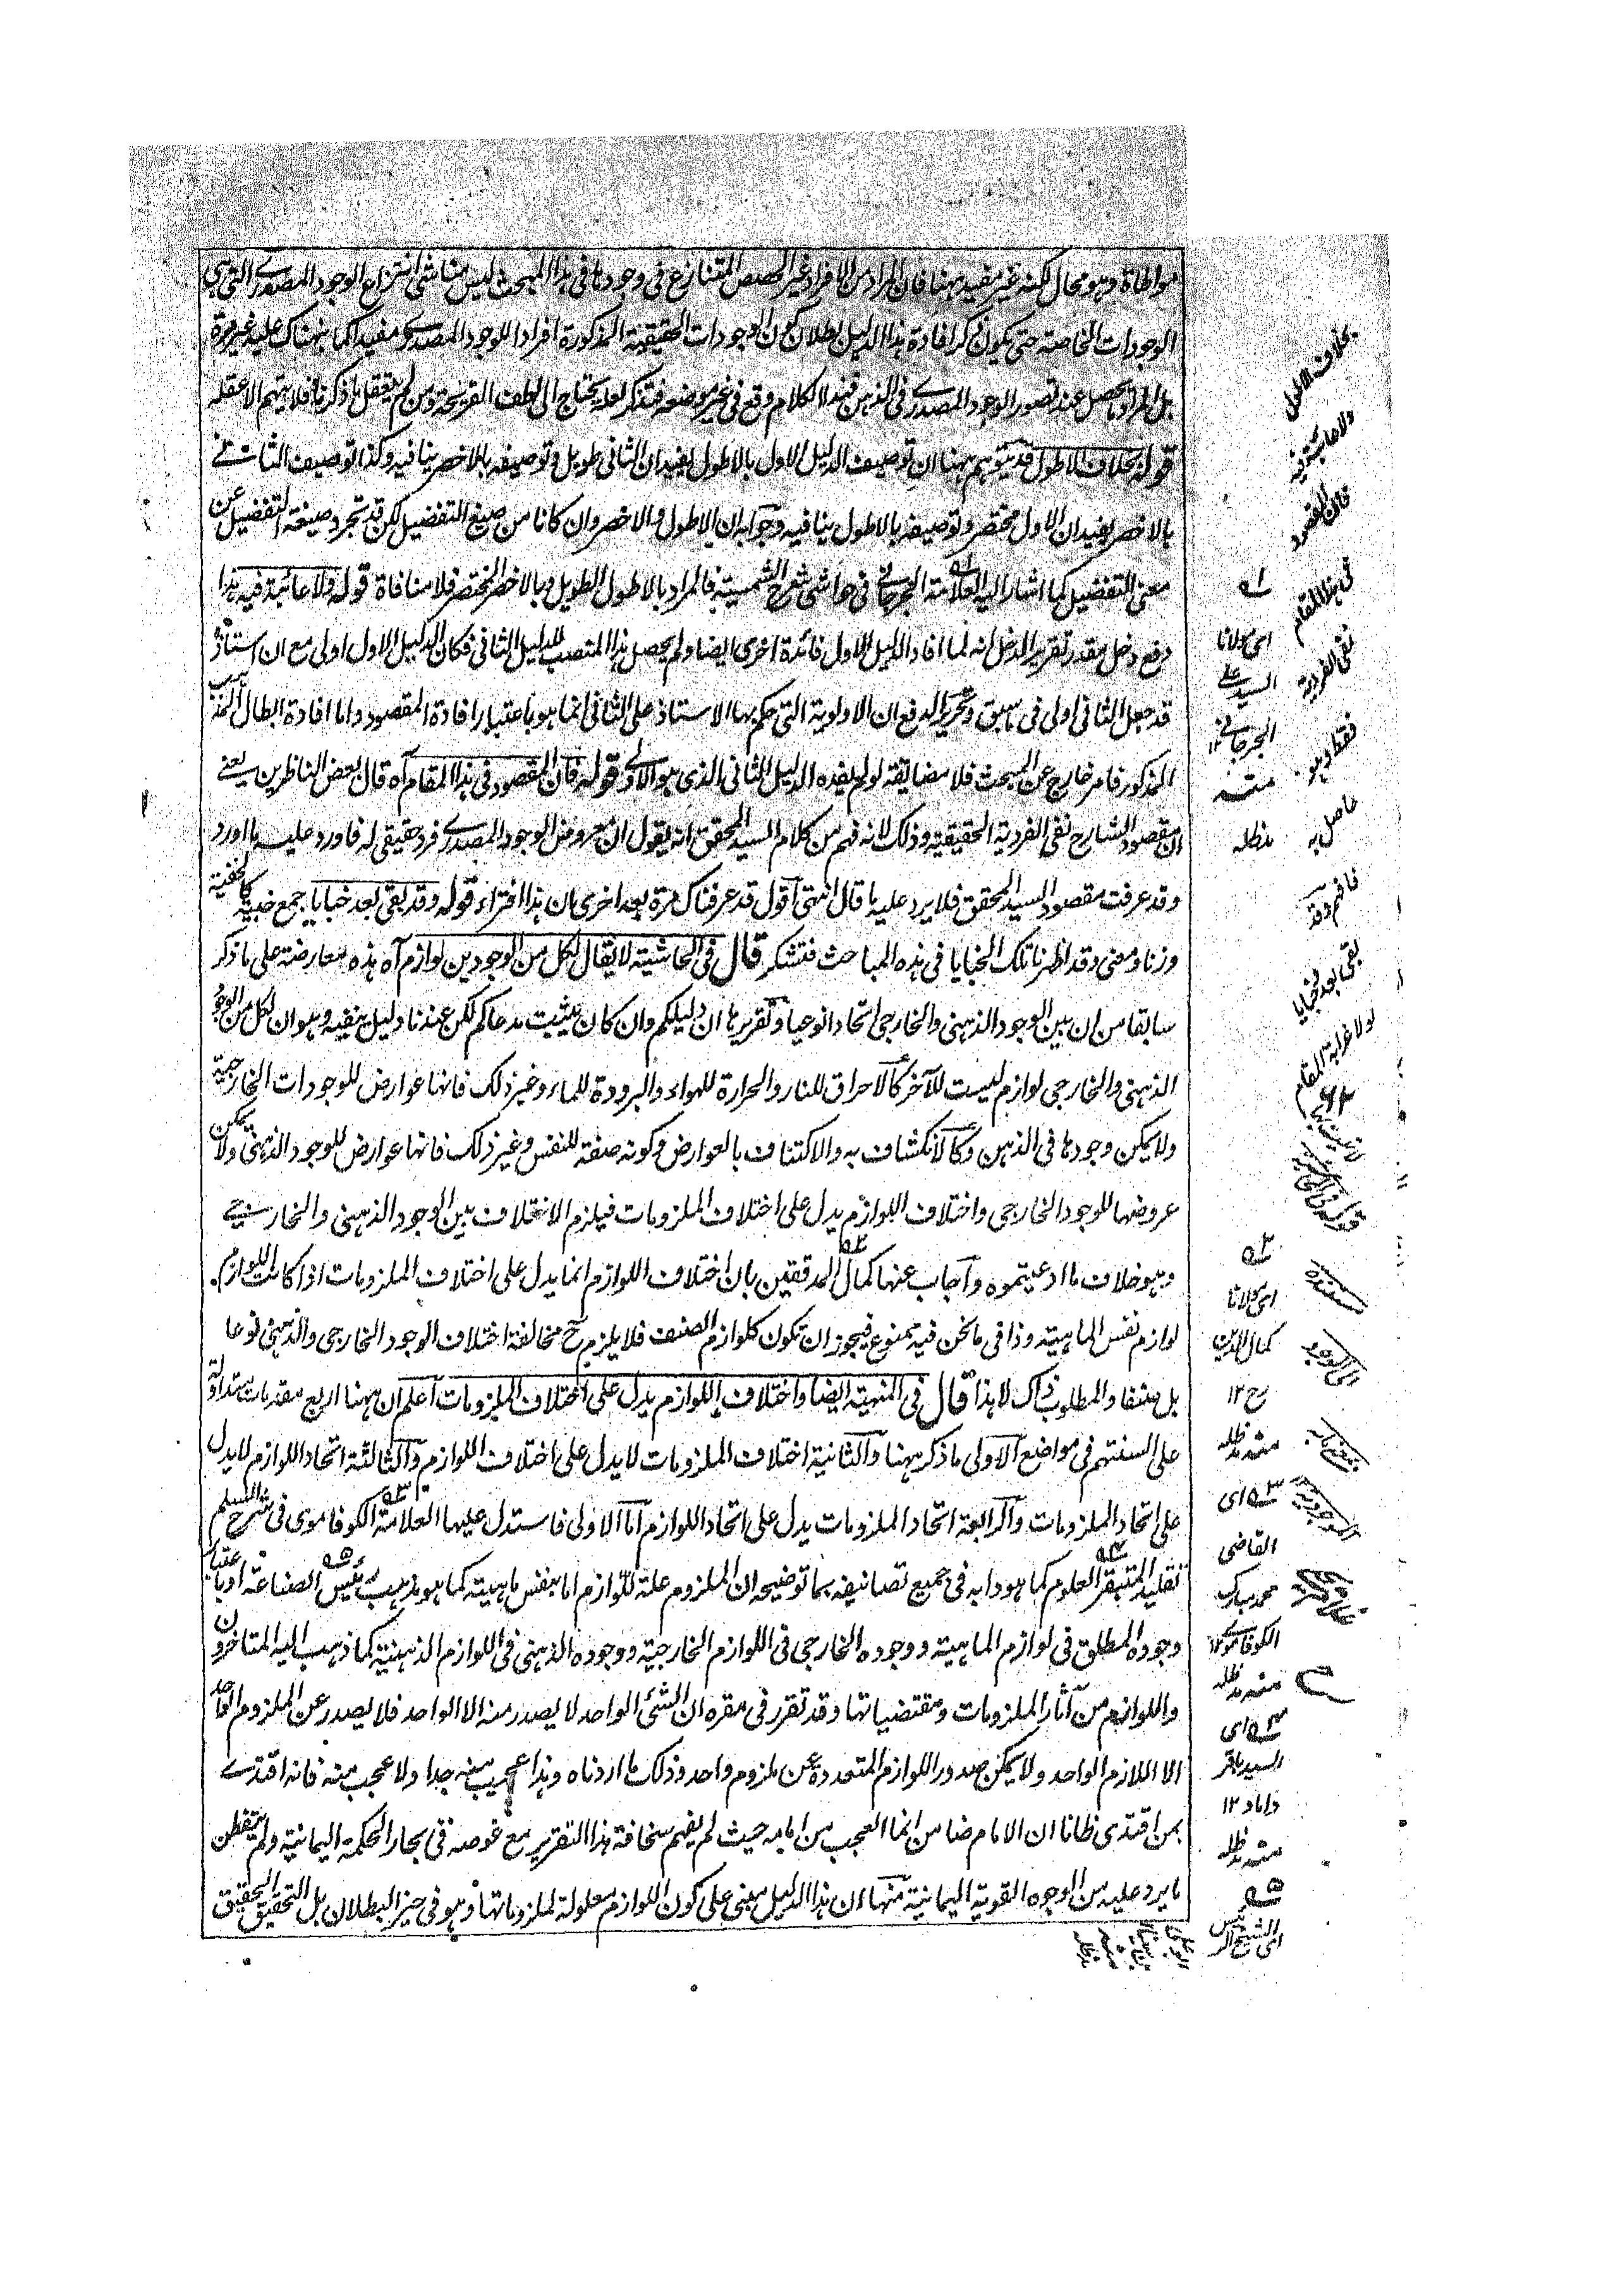 مواطاة وهو محال لكنه غير مفيد ههنا فان المراد من الافراد غير الحصص المتنازع فى وجودها فى هذا المبحث ليس مناشى انتزاع الوجود المصدرى التى هى
الوجودات الخاصة حتى يكون ذكر افادة هذا الدليل بطلان كون الوجودات الحقيقية المذكورة افرادا للوجود المصدرى مفيدا كما نبهناك عليه غير مرة
بل المراد ما يحصل عند تصور الوجود المصدرى فى الذهن فهذا الكلام وقع فى غير موضعه فتذكر لعله يحتاج الى لطف القريحة ومن لم يتعقل ما ذكرنا فلا يتهم الا عقله
قوله بخلاف الاطول قد يتوهم ههنا ان توصيف الدليل الاول بالاطول يفيد ان الثانى طويل وتوصيفه بالاخصر ينافيه وكذا توصيف الثانى
بالاخصر يفيد ان الاول مختصر وتوصيفه بالاطول ينافيه وجوابه ان الاطول والاخصر وان كانا من صيغ التفضيل لكن قد تجرد صيغة التفضيل عن
معنى التفضيل كما اشار اليه العلامة الجرجانى فى حواشى شرح الشمسية فالمراد بالاطول الطويل وبالاخصر المختصر فلا منافاة قوله ولا عائبة فيه هذا
دفع دخل مقدر تقرير الدخل انه لما افاد الدليل الاول فائدة اخرى ايضا ولم يحصل هذا المنصب للدليل الثانى فكان الدليل الاول اولى مع ان استاذ
قد جعل الثانى اولى فى ما سبق وتحرير الدفع ان الاولوية التى حكم بها الاستاذ على الثانى انما هو باعتبار افادة المقصود واما افادة ابطال المذهب
المذكور فامر خارج عن المبحث فلا مضايقة لو لم يفده الدليل الثانى الذى هو الاولى قوله فان المقصود فى هذا المقام آه قال بعض الناظرين يعنى
ان مقصود الشارح نفى الفردية الحقيقية وذلك لانه فهم من كلام السيد المحقق انه يقول ان معروض الوجود المصدرى فرد حقيقى له فاورد عليه ما اورد
وقد عرفت مقصود السيد المحقق فلا يرد عليه ما قال انتهى اقول قد عرفناك مرة بعد اخرى بان هذا افتراء قوله وقد بقى بعد خبايا جمع خبية كالخفية
وزنا ومعنى وقد اظهرنا تلك الخبايا فى هذه المباحث فتشكر قال فى الحاشية لا يقال لكل من الوجودين لوازم آه هذه معارضة على ما ذكر
سابقا من ان بين الوجود الذهنى والخارجى اتحادا نوعيا وتقريرها ان دليلكم وان كان يثبت مدعاكم لكن عندنا دليل ينفيه وهو ان لكل من الوجود
الذهنى والخارجى لوازم ليست للآخر كالاحراق للنار والحرارة للهواء والبرودة للماء وغير ذلك فانها عوارض للوجودات الخارجية
ولا يمكن وجودها فى الذهن وكالانكشاف به والاكتناف بالعوارض وكونه صفة للنفس وغير ذلك فانها عوارض للوجود الذهنى ولا يمكن
عروضها للوجود الخارجى واختلاف اللوازم يدل على اختلاف الملزومات فيلزم الاختلاف بين الوجود الذهنى والخارجى
وهو خلاف ما ادعيتموه واجاب عنها كمال المدققين بان اختلاف اللوازم انما يدل على اختلاف الملزومات اذا كانت اللوازم
لوازم نفس الماهية وذا فى ما نحن فيه ممنوع فيجوز ان تكون كلوازم الصنف فلا يلزم ح مخالفة اختلاف الوجود الخارجى والذهنى نوعا
بل صنفا والمطلوب ذاك لا هذا قال فى المنهية ايضا واختلاف اللوازم يدل على اختلاف الملزومات اعلم ان ههنا اربع مقدمات متداولة
على السنتهم فى مواضع الاولى ما ذكر ههنا والثانية اختلاف الملزومات لا يدل على اختلاف اللوازم والثالثة اتحاد اللوازم لا يدل
على اتحاد الملزومات والرابعة اتحاد الملزومات يدل على اتحاد اللوازم اما الاولى فاستدل عليها العلامة الكوفاموى فى شرح السلم
تقليدا لمتبقر العلوم كما هو دابه فى جميع تصانيفه بما توضيحه ان الملزوم علة للوازم اما بنفس ماهيته كما هو مذهب رئيس الصناعة او باعتبار
وجوده المطلق فى لوازم الماهية ووجوده الخارجى فى اللوازم الخارجية ووجوده الذهنى فى اللوازم الذهنية كما ذهب اليه المتاخرون
واللوازم من آثار الملزومات ومقتضياتها وقد تقرر فى مقره ان الشئ الواحد لا يصدر منه الا الواحد فلا يصدر عن الملزوم الواحد
الا اللازم الواحد ولا يمكن صدور اللوازم المتعددة عن ملزوم واحد وذلك ما اردناه وهذا عجيب منه جدا ولا عجب منه فانه اقتدى
بمن اقتدى ظانا ان الامام ضامن انما العجب من امامه حيث لم يفهم سخافة هذا التقرير مع غوصه فى بحار الحكمة اليمانية ولم يتفطن
ما يرد عليه من الوجوه القوية اليمانية منها ان هذا الدليل مبنى على كون اللوازم معلولة لملزوماتها وهو فى حيز البطلان بل التحقيق الحقيق
بخلاف الاطول
ولا عائبة فيه
فان المقصود
فى هذا المقام
نفى الفردية
فقط وهو
حاصل به
فافهم وقد
بقى بعد خبايا
لولا غرابة المقام
اى مولانا
السيد على
الجرجانى ١٢
منه
مدظله
اى مولانا
كمال الدين
رح ١٢
منه مدظله
اى
القاضى
محمد مبارك
الكوفاموى ١٢
منه مدظله
اى
السيد باقر
داماد ١٢
منه مدظله
اى الشيخ الرئيس